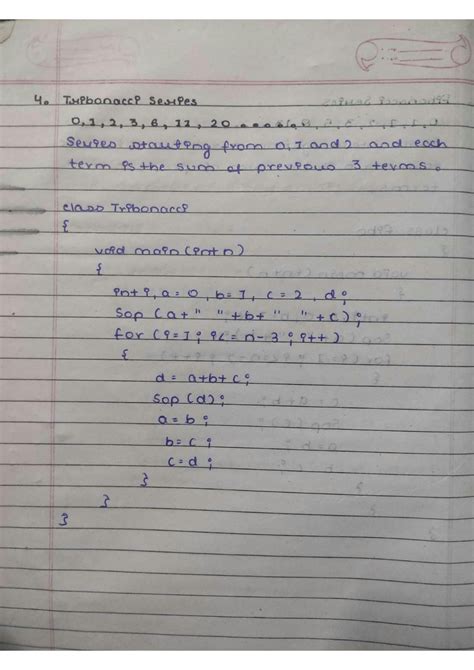 4. Tribonacci Series
0, 1, 2, 3, 6, 11, 20 ........
Series starting from 0, 1 and 2 and each
term is the sum of previous 3 terms.
class Tribonacci
{
void main (int n)
{
int i, a = 0, b = 1, c = 2, d;
Sop (a + " " + b + " " + c);
for (i = 1; i <= n - 3; i++)
{
d = a+b+c;
Sop (d);
a = b;
b = c;
c = d;
}
}
}